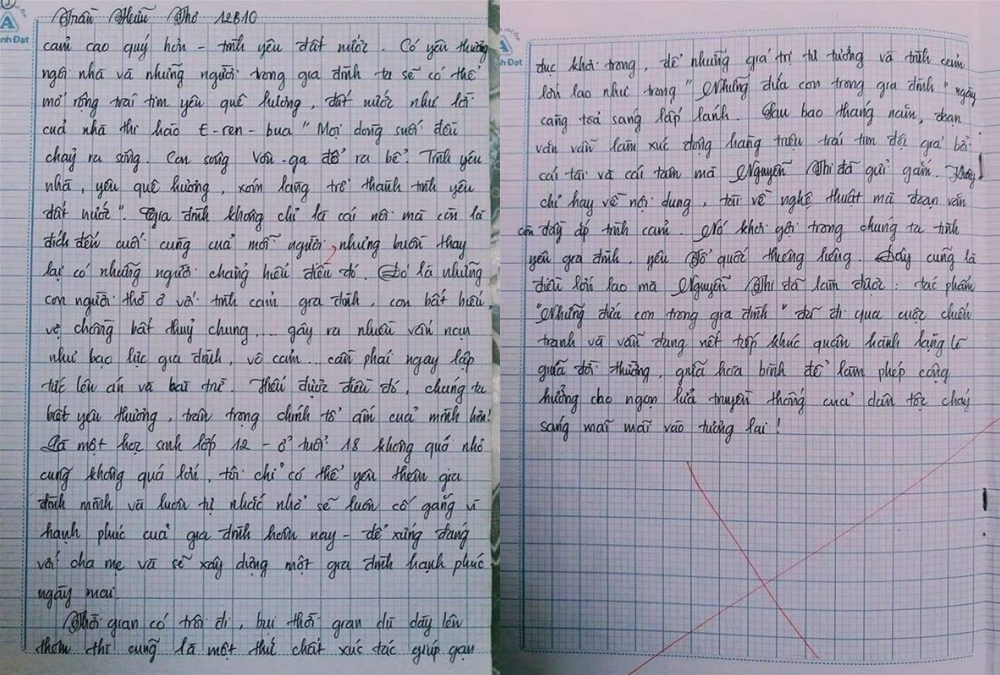 Trần Hữu Thơ 12B10
cảm cao quý hơn - tình yêu đất nước. Có yêu thương
ngôi nhà và những người trong gia đình ta sẽ có thể
mở rộng trái tim yêu quê hương, đất nước như lời
của nhà thơ hào E-ren-bua "Mọi dòng suối đều
chảy ra sông. Con sông Vôn-ga đổ ra bể. Tình yêu
nhà, yêu quê hương, xóm làng trở thành tình yêu
đất nước". Gia đình không chỉ là cái nôi mà còn là
đích đến cuối cùng của mỗi người nhưng buồn thay
lại có những người chẳng hiểu điều đó. Đó là những
con người thờ ơ với tình cảm gia đình, con bất hiếu,
vợ chồng bất thuỷ chung.... gây ra nhiều vấn nạn
như bạo lực gia đình, vô cảm... cần phải ngay lập
tức lên án và bài trừ. Hiểu được điều đó, chúng ta
biết yêu thương, trân trọng chính tổ ấm của mình hơn!
Là một học sinh lớp 12 - ở tuổi 18 không quá nhỏ
cũng không quá lớn, tôi chỉ có thể yêu thêm gia
đình mình và luôn tự nhắc nhở sẽ luôn cố gắng vì
hạnh phúc của gia đình hôm nay - để xứng đáng
với cha mẹ và sẽ xây dựng một gia đình hạnh phúc
ngày mai.
Thời gian có trôi đi, bụi thời gian dù dày lên
thêm thì cũng là một thứ chất xúc tác giúp gạn
đục khơi trong, để những giá trị tư tưởng và tình cảm
lớn lao như trong "Những đứa con trong gia đình" ngày
càng toả sáng lấp lánh. Sau bao tháng năm, đoạn
văn vẫn làm xúc động hàng triệu trái tim độc giả bởi
cái tài và cái tâm mà Nguyễn Thi đã gửi gắm. Không
chỉ hay về nội dung, tài về nghệ thuật mà đoạn văn
còn đầy ắp tình cảm. Nó khơi gợi trong chúng ta tình
yêu gia đình, yêu Tổ quốc thương liêng. Đây cũng là
điều lớn lao mà Nguyễn Thi đã làm được: tác phẩm
"Những đứa con trong gia đình" đã đi qua cuộc chiến
tranh và vẫn đang nối tiếp khúc quân hành lặng lẽ
giữa đời thường, giữa hoà bình để làm phép cộng
hưởng cho ngọn lửa truyền thống của dân tộc cháy
sáng mãi mãi vào tương lai!